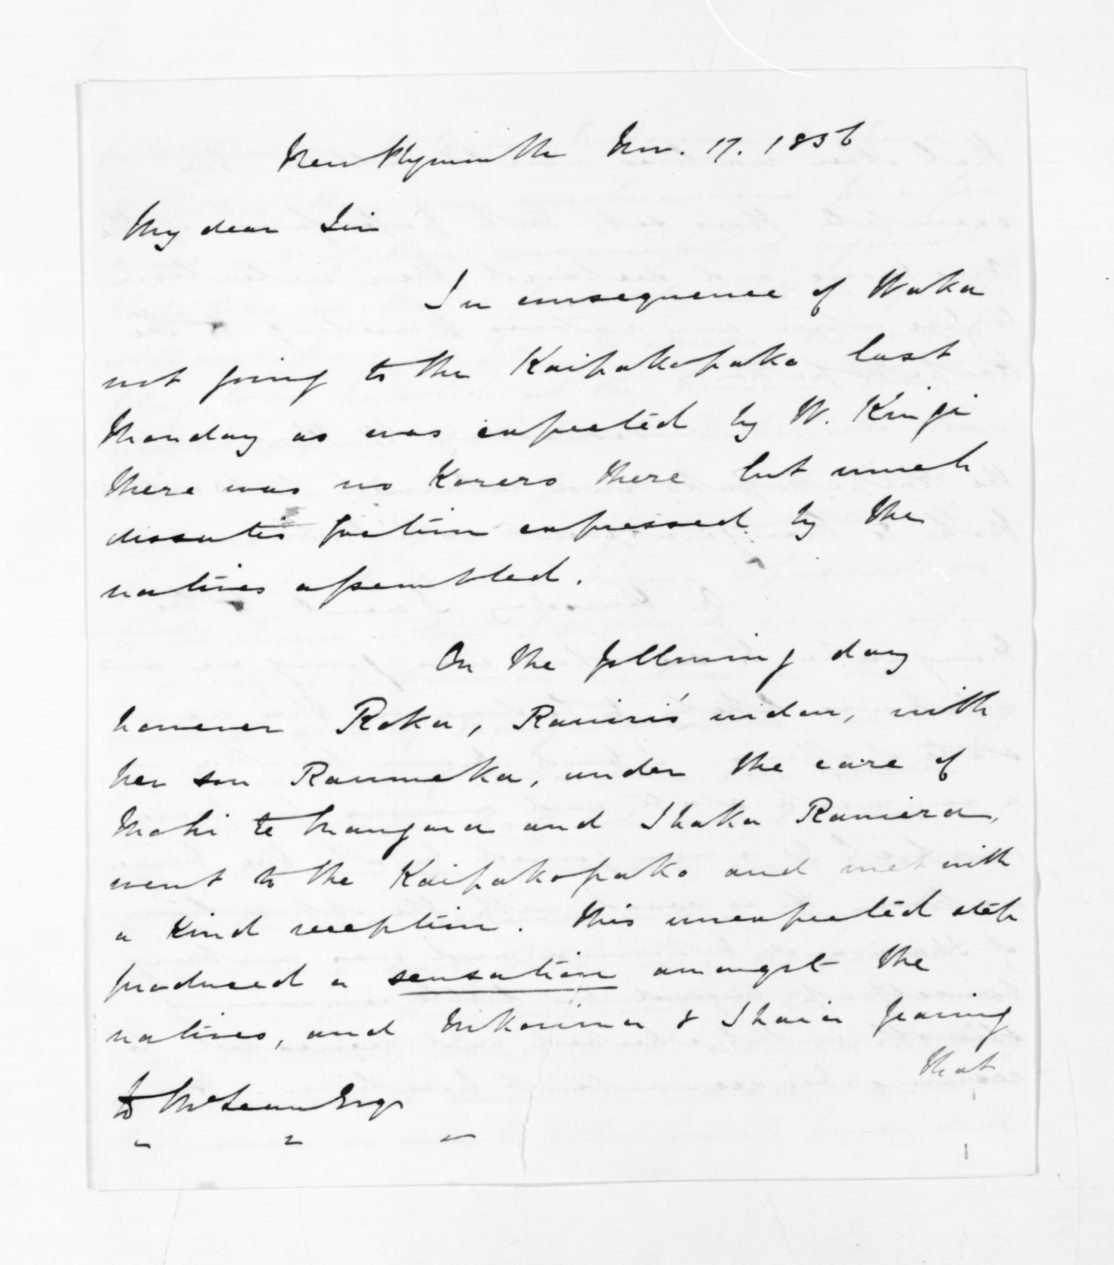 New Plymouth Nov. 17. 1856
My dear Sir
In consequence of Waka
not going to the Kaipakopako last
Monday as was expected by W. Kingi
there was no Korero there but much
dissatisfaction expressed by the
natives assembled.
On the following day
however Roka, Rawiri's widow, with
her son Raumoka, under the care of
Mahi te and Ihaka Rawiera,
went to the Kaipakopako and met with
a kind reception. This unexpected step
produced a sensation amongst the
natives, and Nikorima & Ihaia fearing
that
McLean Esqr